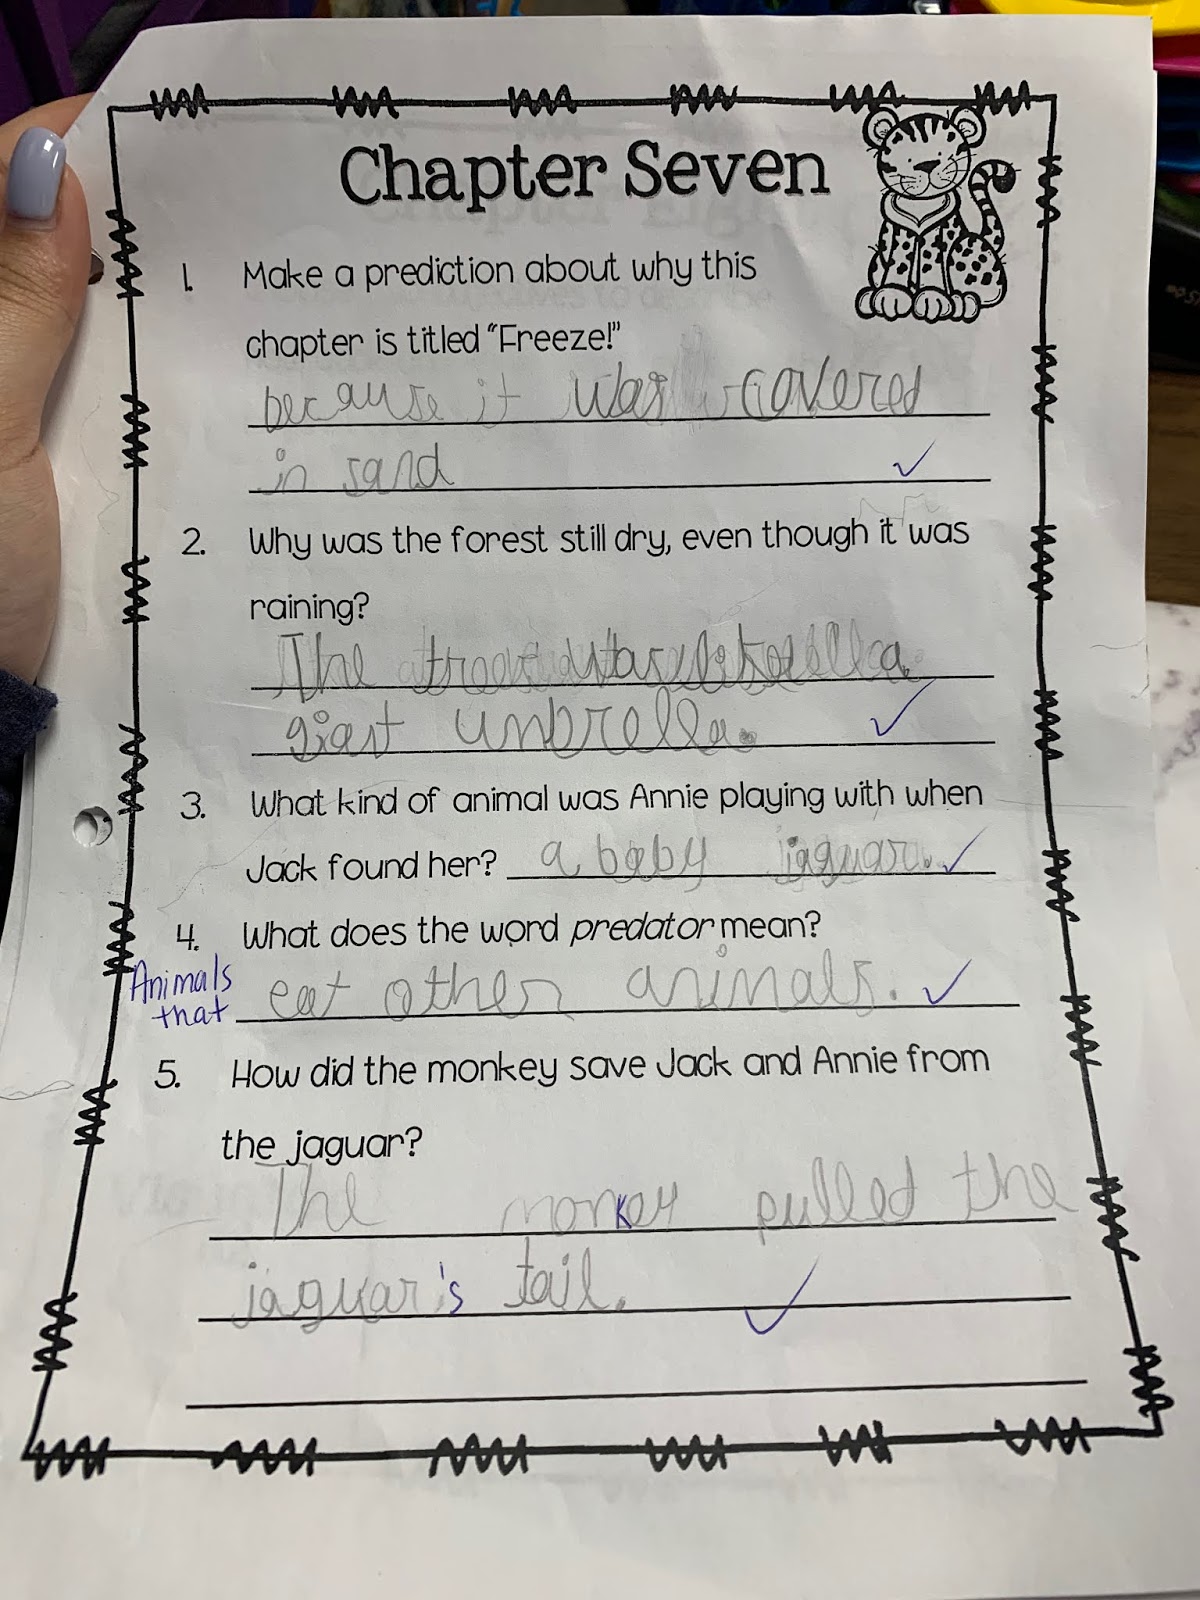 Chapter Seven
1. Make a prediction about why this
chapter is titled "Freeze!"
because it was covered
in sand
2. Why was the forest still dry, even though it was
raining?
The a
giant umbrella.
3. What kind of animal was Annie playing with when
Jack found her? a baby jaguar.
4. What does the word predator mean?
Animals
that eat other animals.
5. How did the monkey save Jack and Annie from
the jaguar?
The monkey pulled the
jaguar's tail.